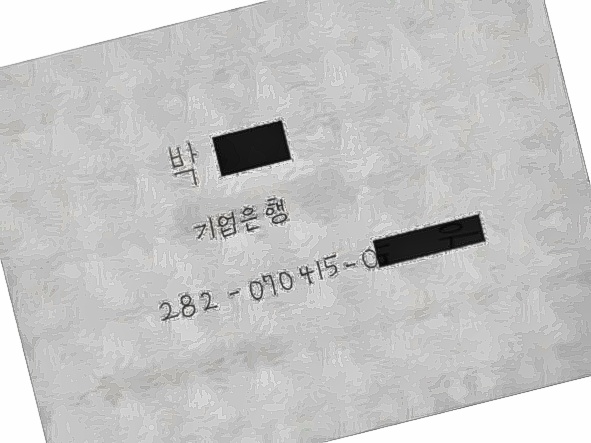 박
기업은행
282-070415-0